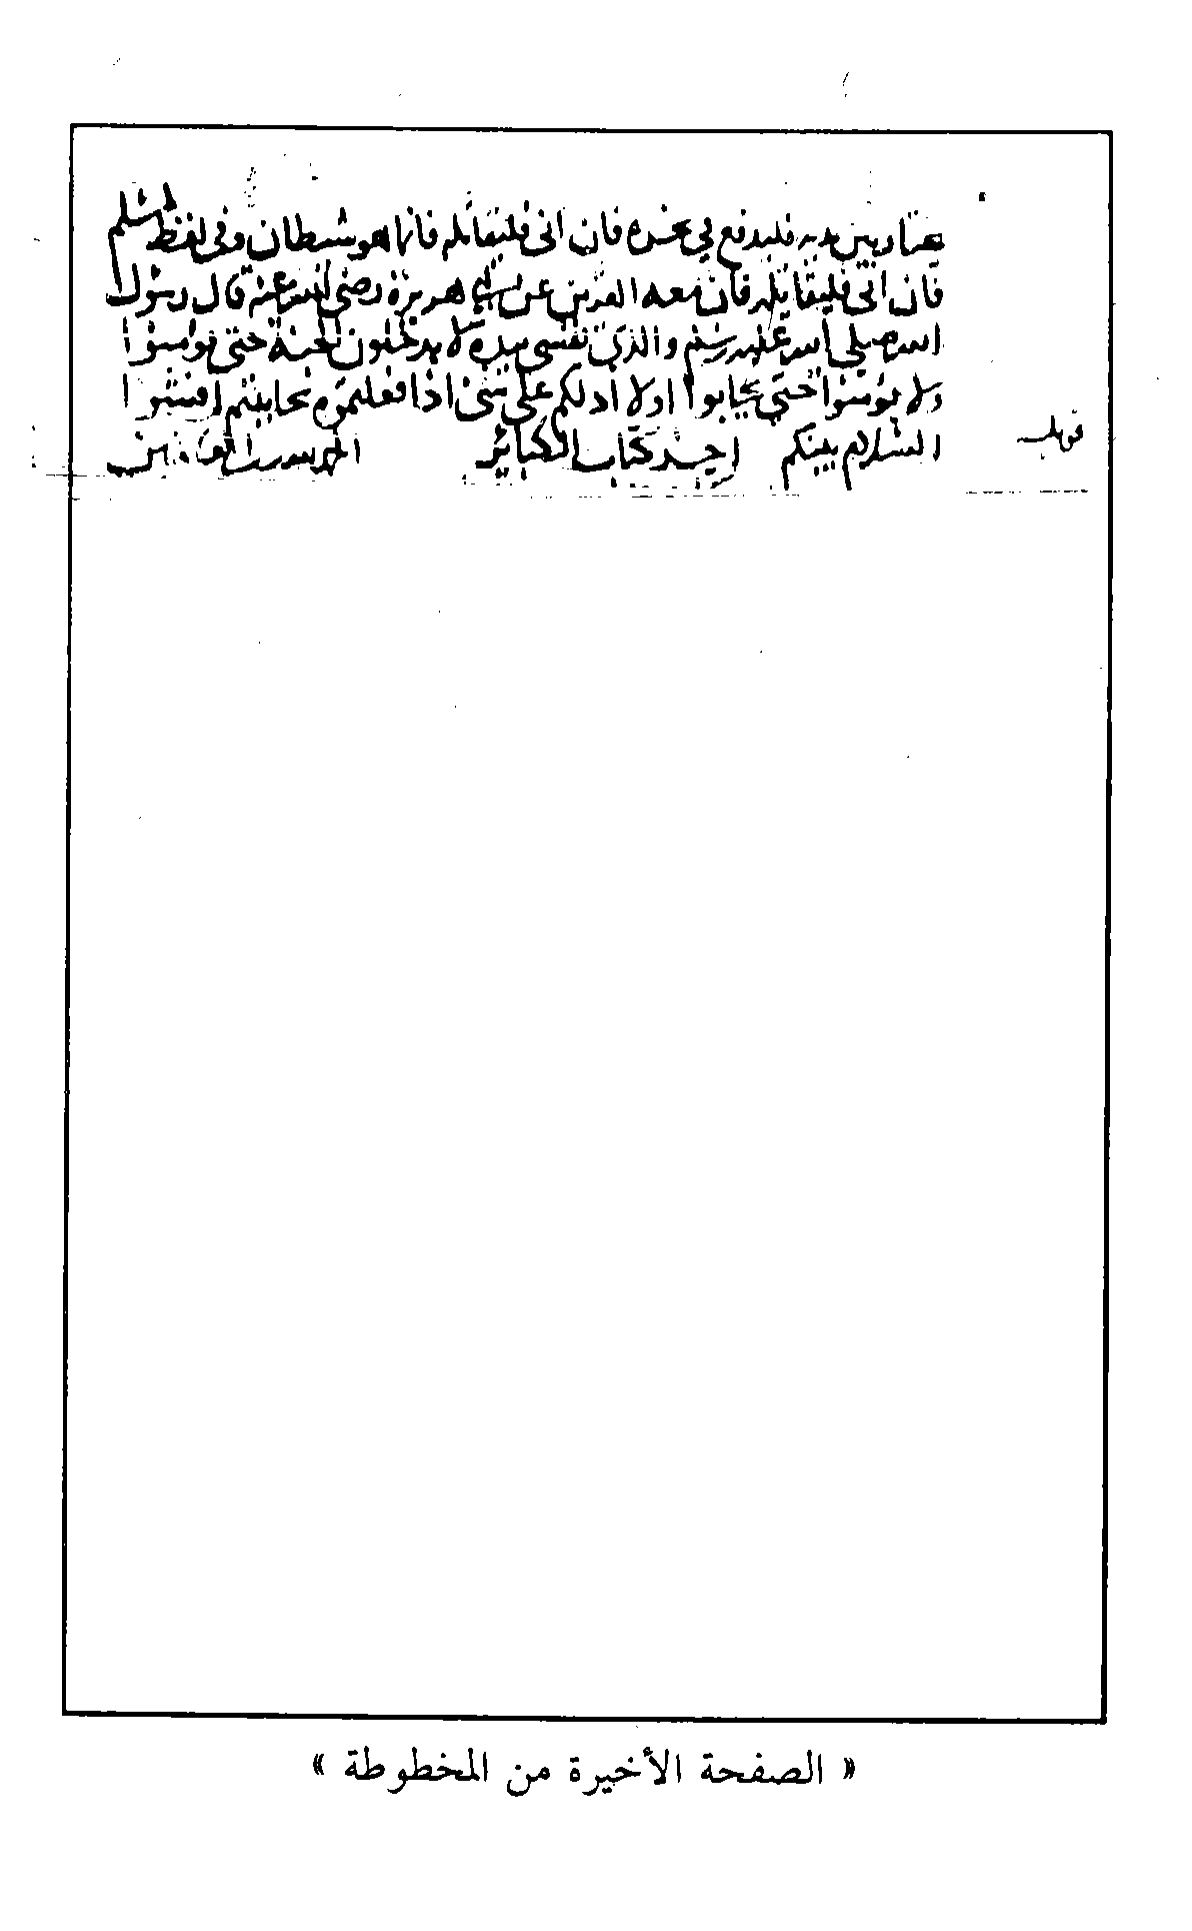 يجتاز بين يديه فليدفع في نحره فان ابى فليقاتله فانما هو شيطان وفي لفظ لمسلم
فان ابى فليقاتله فان معه القرين عن ابي هريرة رضي الله عنه قال رسول
الله صلى الله عليه وسلم والذي نفسي بيده لا يدخلون الجنة حتى تؤمنوا
ولا تؤمنوا حتى تحابوا اولا ادلكم على شئ اذا فعلتموه تحاببتم افشوا
السلام بينكم اخر كتاب الكبائر الحمد لله رب العالمين
قوبل
« الصفحة الأخيرة من المخطوطة »